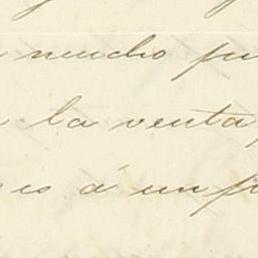 mucho pu
la venta,
es á un p